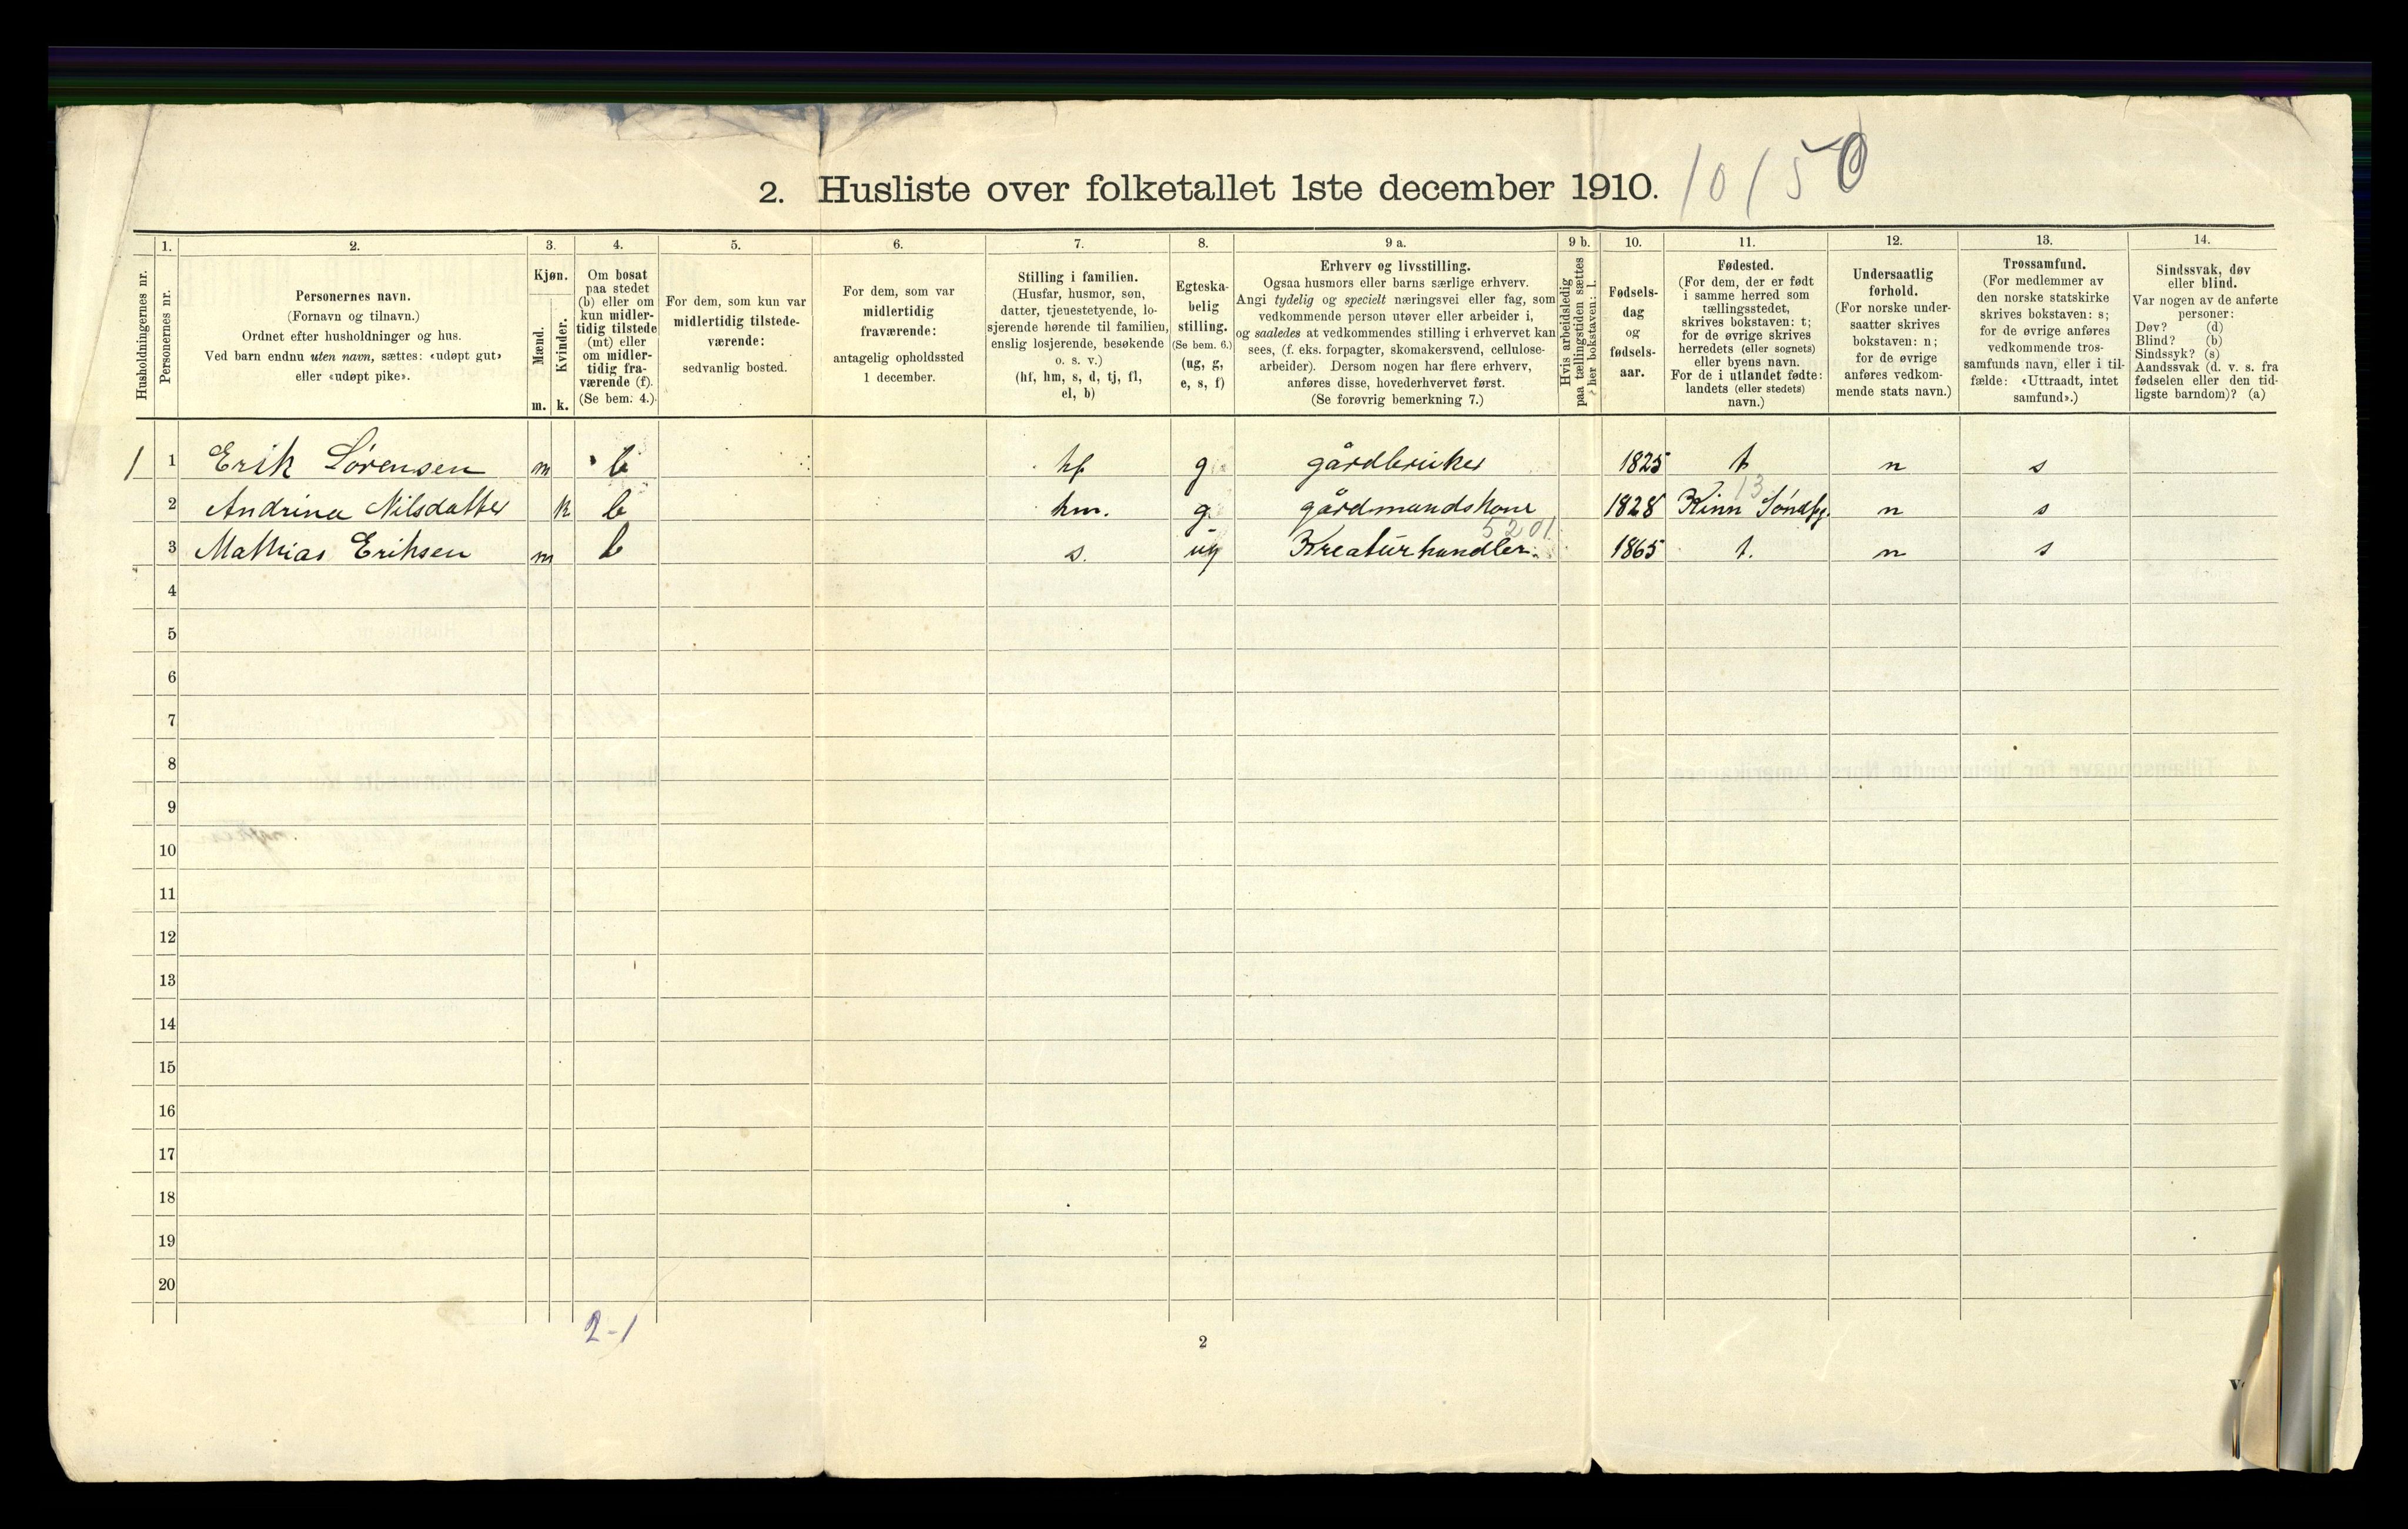 2. Husliste over folketallet 1ste december 1910. 10/50
Husholdningernes nr.
1.
Personernes nr.
2.
Personernes navn.
(Fornavn og tilnavn.)
Ordnet efter husholdninger og hus.
Ved barn endnu uten navn, sættes: «udøpt gut»
eller «udøpt pike».
3.
Kjøn.
Mænd.
Kvinder.
m. k.
4.
Om bosat
paa stedet
(b) eller om
kun midler-
tidig tilstede
(mt) eller
om midler-
tidig fra-
værende (f).
(Se bem. 4.)
5.
For dem, som kun var
midlertidig tilstede-
værende:
sedvanlig bosted.
6.
For dem, som var
midlertidig
fraværende:
antagelig opholdssted
1 december.
7.
Stilling i familien.
(Husfar, husmor, søn,
datter, tjenestetyende, lo-
sjerende hørende til familien,
enslig losjerende, besøkende
o. s. v.)
(hf, hm, s, d, tj, fl,
el, b)
8.
Egteska-
belig
stilling.
(Se bem. 6.)
(ug, g,
e, s, f)
9 a.
Erhverv og livsstilling.
Ogsaa husmors eller barns særlige erhverv.
Angi tydelig og specielt næringsvei eller fag, som
vedkommende person utøver eller arbeider i,
og saaledes at vedkommendes stilling i erhvervet kan
sees, (f. eks. forpagter, skomakersvend, cellulose-
arbeider). Dersom nogen har flere erhverv,
anføres disse, hovederhvervet først.
(Se forøvrig bemerkning 7.)
9 b.
Hvis arbeidsledig
paa tællingstiden sættes
her bokstaven: l.
10.
Fødsels-
dag
og
fødsels-
aar.
11.
Fødested.
(For dem, der er født
i samme herred som
tællingsstedet,
skrives bokstaven: t;
for de øvrige skrives
herredets (eller sognets)
eller byens navn.
For de i utlandet fødte:
landets (eller stedets)
navn.)
12.
Undersaatlig
forhold.
(For norske under-
saatter skrives
bokstaven: n;
for de øvrige
anføres vedkom-
mende stats navn.)
13.
Trossamfund.
(For medlemmer av
den norske statskirke
skrives bokstaven: s;
for de øvrige anføres
vedkommende tros-
samfunds navn, eller i til-
fælde: «Uttraadt, intet
samfund».)
14.
Sindssvak, døv
eller blind.
Var nogen av de anførte
personer:
Døv? (d)
Blind? (b)
Sindssyk? (s)
Aandssvak (d. v. s. fra
fødselen eller den tid-
ligste barndom)? (a)
1 1 Erik Sørensen m b hf g gårdbruker 1825 t n s
13
2 Andrina Nilsdatter k b hm. g gårdmandskone 1828 Kinn Søndfj. n s
5201
3 Mathias Eriksen m b s. ug Kreaturhandler. 1865 t. n s
4
5
6
7
8
9
10
11
12
13
14
15
16
17
18
19
20
2-1
2